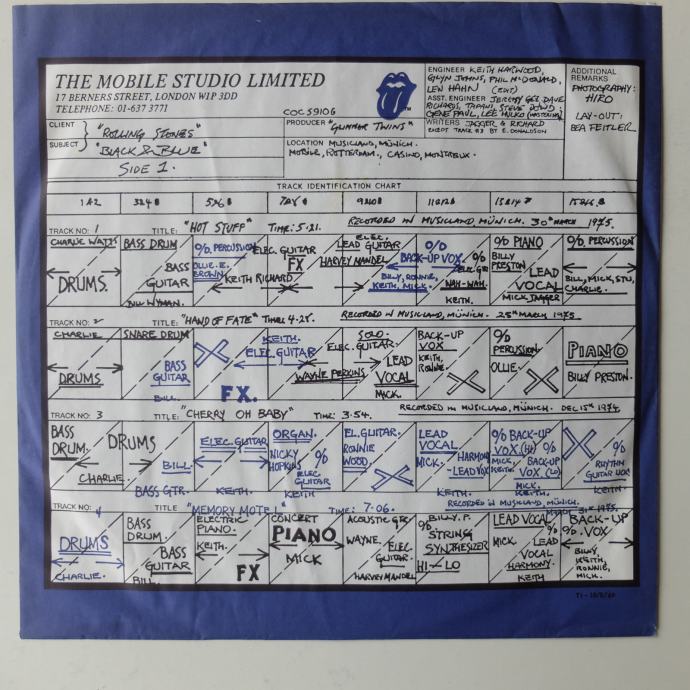 THE MOBILE STUDIO LIMITED
17 BERNERS STREET, LONDON W1P 3DD
TELEPHONE: 01-637 3771
COC 59106
CLIENT "ROLLING STONES"
SUBJECT "BLACK & BLUE"
SIDE 1.
PRODUCER "GLIMMER TWINS"
LOCATION MUSICLAND, MÜNICH.
MOBILE, ROTTERDAM, CASINO, MONTREUX.
ENGINEER KEITH HARWOOD,
GLYN JOHNS, PHIL McDONALD,
LEW HAHN (EDIT)
ASST. ENGINEER JEREMY GEE, DAVE
RICHARDS, TAPANI, STEVE DOWD,
GENE PAUL, LEE HULKO (MASTERING)
WRITERS JAGGER & RICHARD
EXCEPT TRACK #3 BY E. DONALDSON
ADDITIONAL
REMARKS
PHOTOGRAPHY:
HIRO
LAY-OUT:
BEA FEITLER
TRACK IDENTIFICATION CHART
1 & 2
TRACK NO: 1 TITLE: "HOT STUFF" TIME: 5.21. RECORDED IN MUSICLAND, MÜNICH. 30th MARCH 1975.
CHARLIE WATTS
DRUMS.
BASS DRUM
BASS
GUITAR
BILL WYMAN.
% PERCUSSION
OLLIE. E.
BROWN
ELEC. GUITAR
FX
KEITH RICHARD
ELEC.
LEAD GUITAR
HARVEY MANDEL
%
BACK-UP VOX.
BILLY, RONNIE,
KEITH, MICK.
WAH-WAH.
KEITH.
% PIANO
BILLY
PRESTON
LEAD
VOCAL
MICK JAGGER
% PERCUSSION
BILL, MICK, STU,
CHARLIE.
TRACK NO: 2 TITLE: "HAND OF FATE" TIME: 4.28. RECORDED IN MUSICLAND, MÜNICH. 25th MARCH 1975
CHARLIE
DRUMS
SNARE DRUM
BASS
GUITAR
BILL
FX.
KEITH
ELEC. GUITAR
WAYNE PERKINS
SOLO
ELEC. GUITAR
LEAD
VOCAL
MICK.
BACK-UP
VOX
KEITH,
RONNIE.
%
PERCUSSION
OLLIE.
PIANO
BILLY PRESTON.
TRACK NO: 3 TITLE: "CHERRY OH BABY" TIME: 3.54. RECORDED IN MUSICLAND, MÜNICH. DEC 15th 1974
BASS
DRUM.
DRUMS
CHARLIE.
BILL.
BASS GTR.
ELEC. GUITAR
KEITH.
ORGAN.
NICKY
HOPKINS
%
ELEC.
GUITAR
KEITH
EL. GUITAR.
RONNIE
WOOD.
LEAD
VOCAL.
MICK.
HARMONY
-LEAD VOX
KEITH.
% BACK-UP
VOX. (HI) %
MICK,
KEITH.
BACK-UP
VOX. (LO)
MICK.
KEITH.
%
RHYTHM
GUITAR
KEITH
TRACK NO: 4 TITLE: "MEMORY MOTEL" TIME: 7.06. RECORDED IN MUSICLAND, MÜNICH. MAR 31st 1975.
DRUMS
CHARLIE.
BASS
DRUM.
BASS
GUITAR
BILL
ELECTRIC
PIANO.
KEITH.
FX
CONCERT
PIANO
MICK
ACOUSTIC GTR
WAYNE.
ELEC.
GUITAR.
HARVEY MANDEL
BILLY. P.
%
STRING
SYNTHESIZER
HI-LO
LEAD VOCAL
%
MICK.
LEAD
VOCAL
HARMONY.
KEITH
BACK-UP
% VOX.
BILLY,
KEITH,
RONNIE,
MICK.